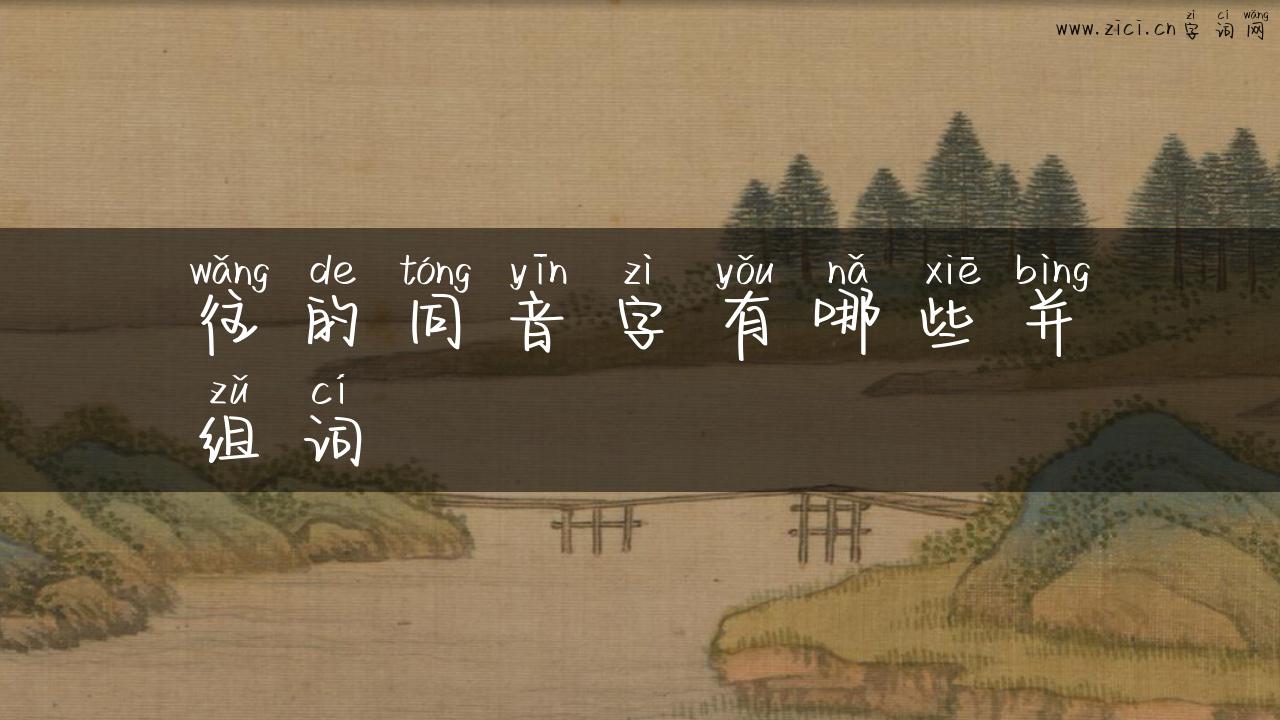 zì cí wǎng
www.zici.cn 字词网
wǎng de tóng yīn zì yǒu nǎ xiē bìng
往的同音字有哪些并
zǔ cí
组词